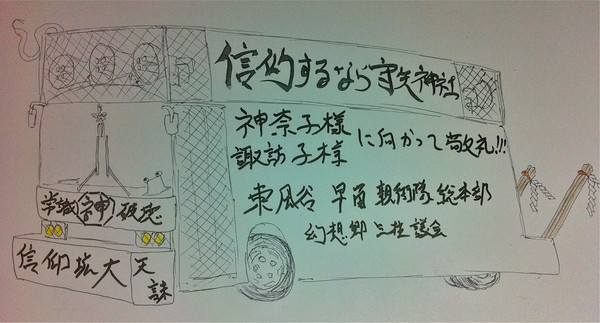 信仰するなら守矢神社
神奈子様
諏訪子様
に向かって敬礼!!!
東風谷 早苗 親衛隊 総本部
幻想郷 三柱議会
常識 神 破壊
信仰拡大 天誅